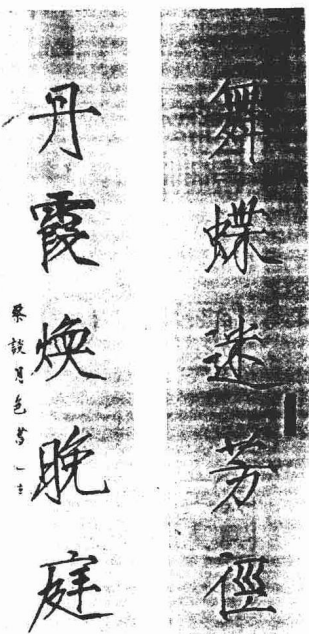 舞蝶迷芳徑
丹霞煥晚庭
蔡談月色